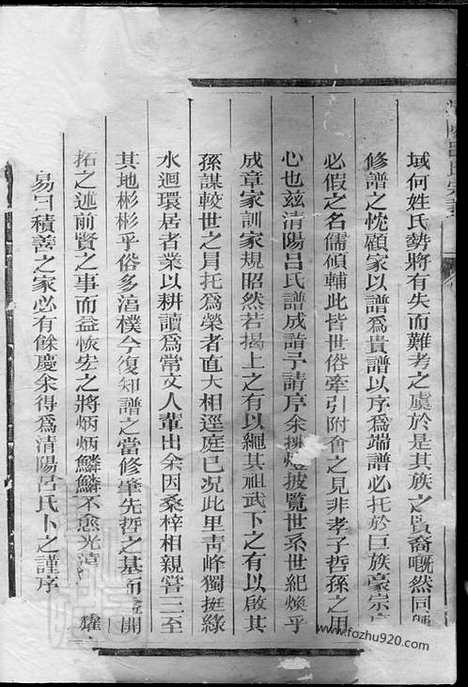 域何姓氏勢將有失而難考之虞於是其族之賢裔慨然同興
修譜之忱顧家以譜爲貴譜以序爲端譜必托於巨族豪宗序
必假之名儒傾輔此皆世俗牽引附會之見非孝子哲孫之用
心也茲清陽呂氏譜成詣予請序余挑燈披覽世系世紀煥乎
成章家訓家規昭然若揭上之有以繩其祖武下之有以啟其
孫謀較世之冒托爲榮者直大相逕庭已況此里靑峰獨挺綠
水迴環居者業以耕讀爲常文人輩出余因桑梓相親嘗三至
其地彬彬乎俗多渲樸今復知譜之當修肇先哲之基而開
拓之述前賢之事而益恢宏之將炳炳鱗鱗不愈光 煒
易曰積善之家必有餘慶余得爲清陽呂氏卜之謹序
www.fozhu920.com